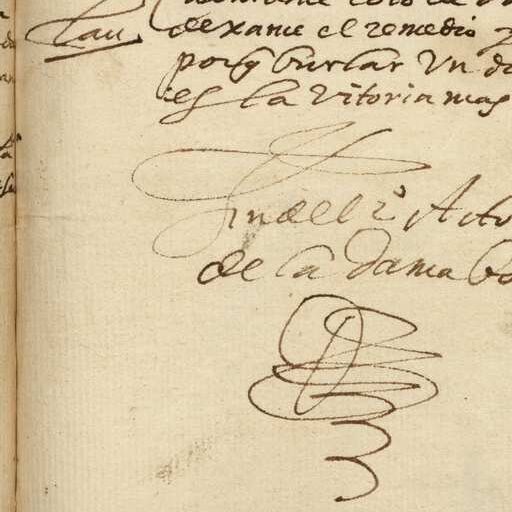 Lau
dexame el remedio
porq burlar Vn
es la Vitoria mas
fin del 2º Acto
de la dama bo